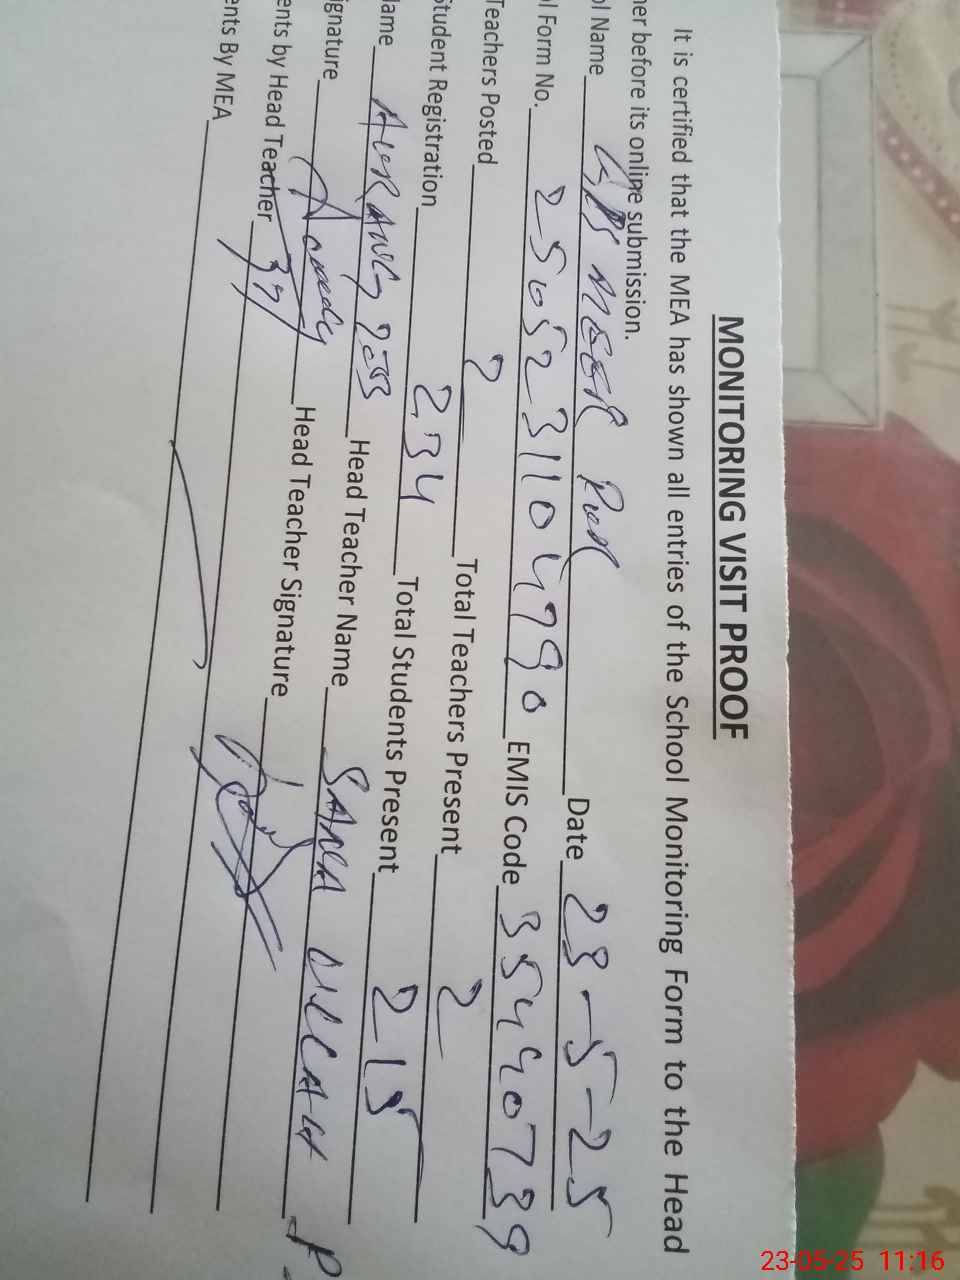 MONITORING VISIT PROOF
It is certified that the MEA has shown all entries of the School Monitoring Form to the Head
her before its online submission.
ol Name Date 23-5-25
ol Form No. 2505231104790 EMIS Code 35440739
Teachers Posted 2 Total Teachers Present 2
Student Registration 234 Total Students Present 215
Name AURANGZEB Head Teacher Name SANA ULLAH
ignature Head Teacher Signature
ents by Head Teacher
ents By MEA
23-05-25 11:16